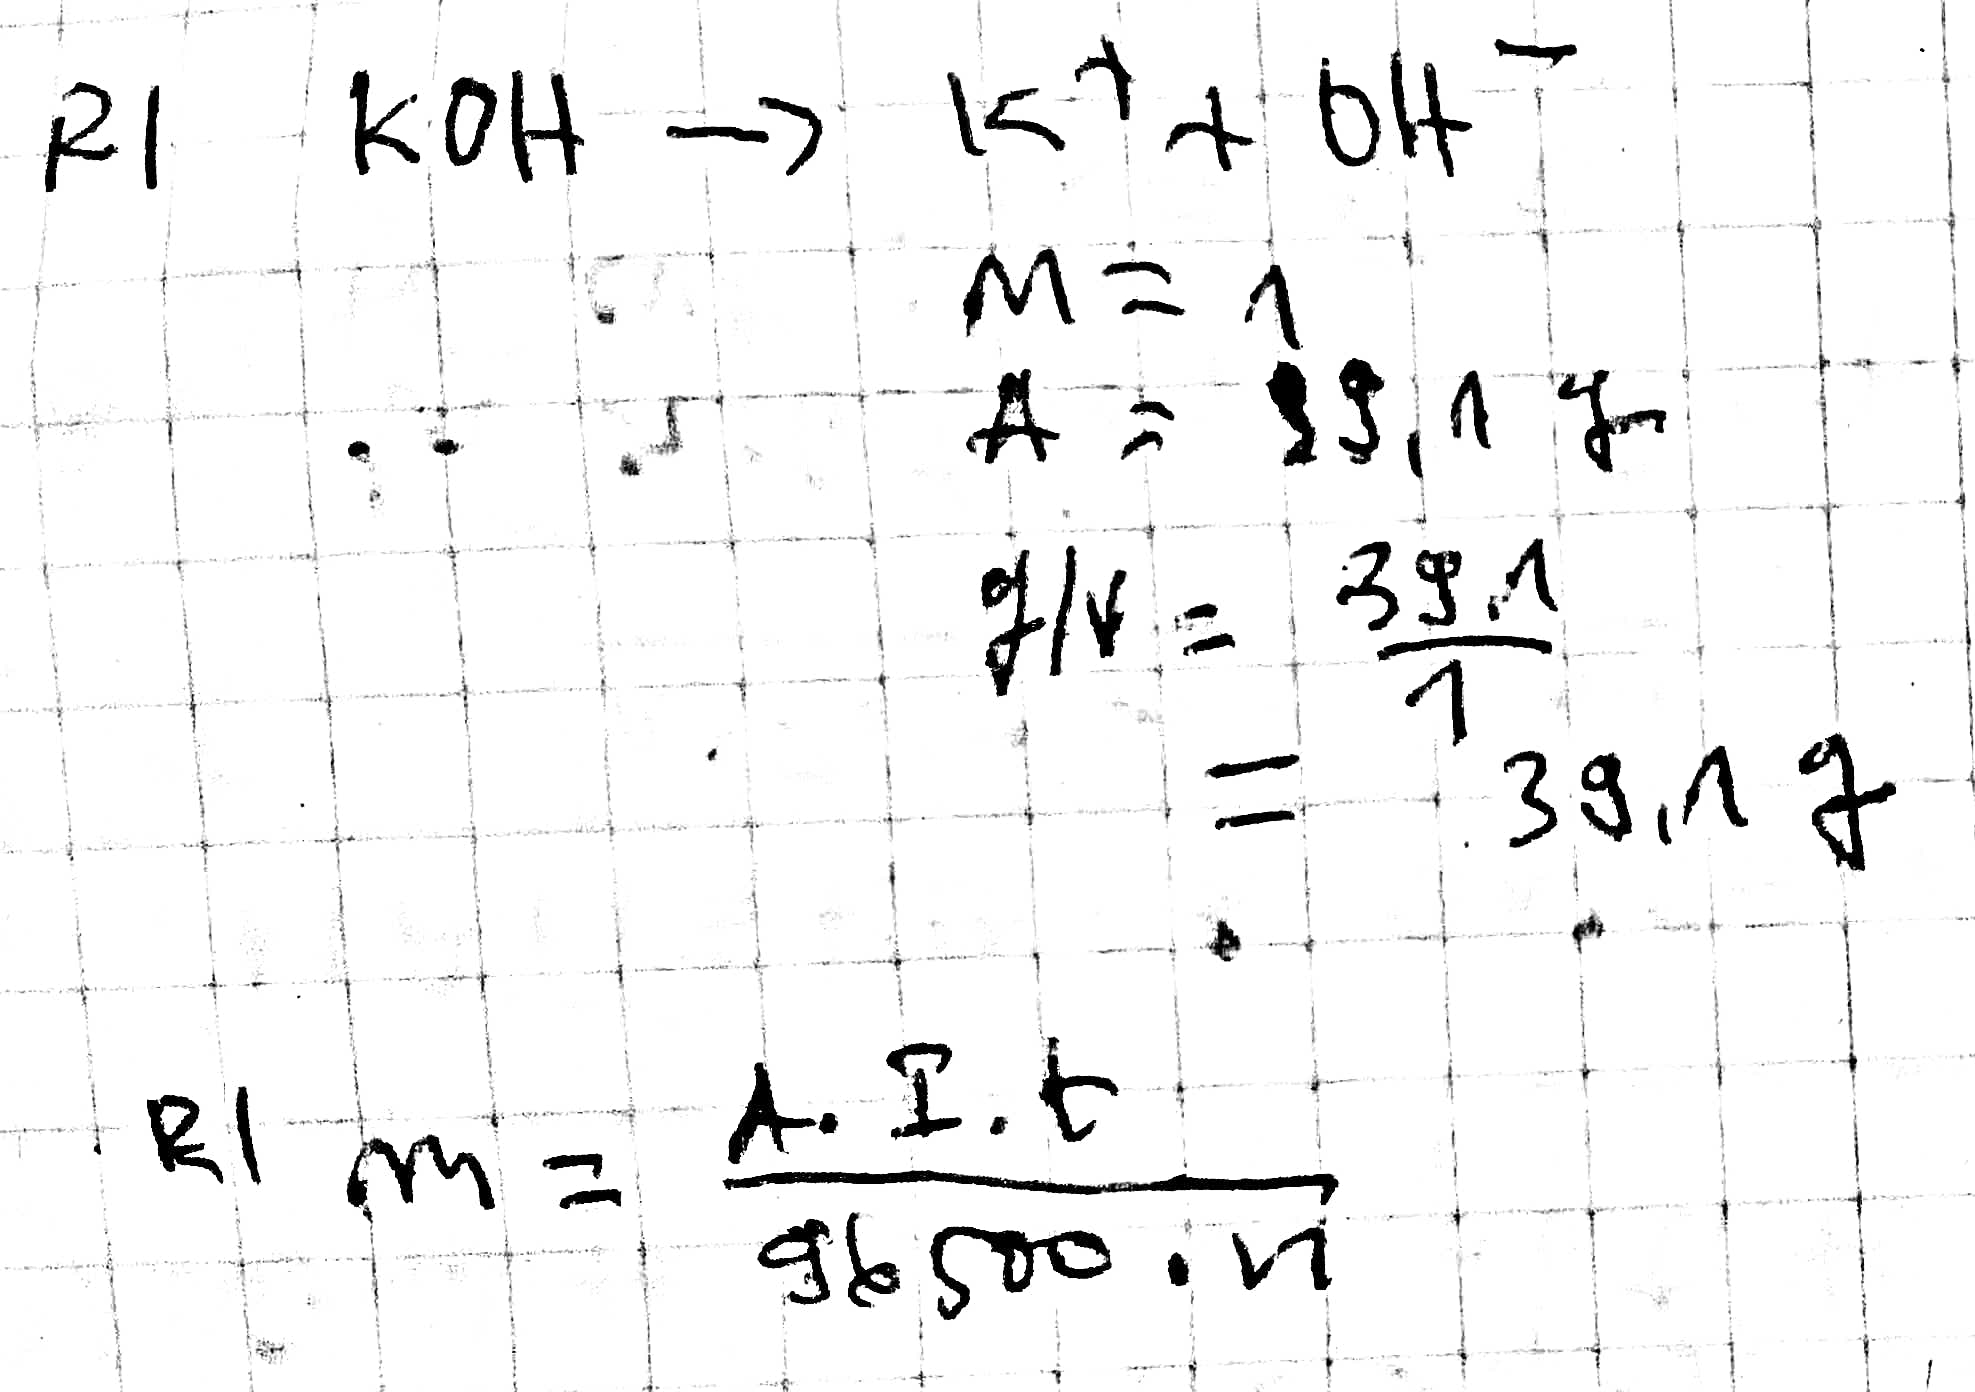 R| KOH → K⁺ + OH⁻
M = 1
A = 39,1 g
g/v = 39,1 / 1
= 39,1 g
R| m = A. I. t / 96500 . n